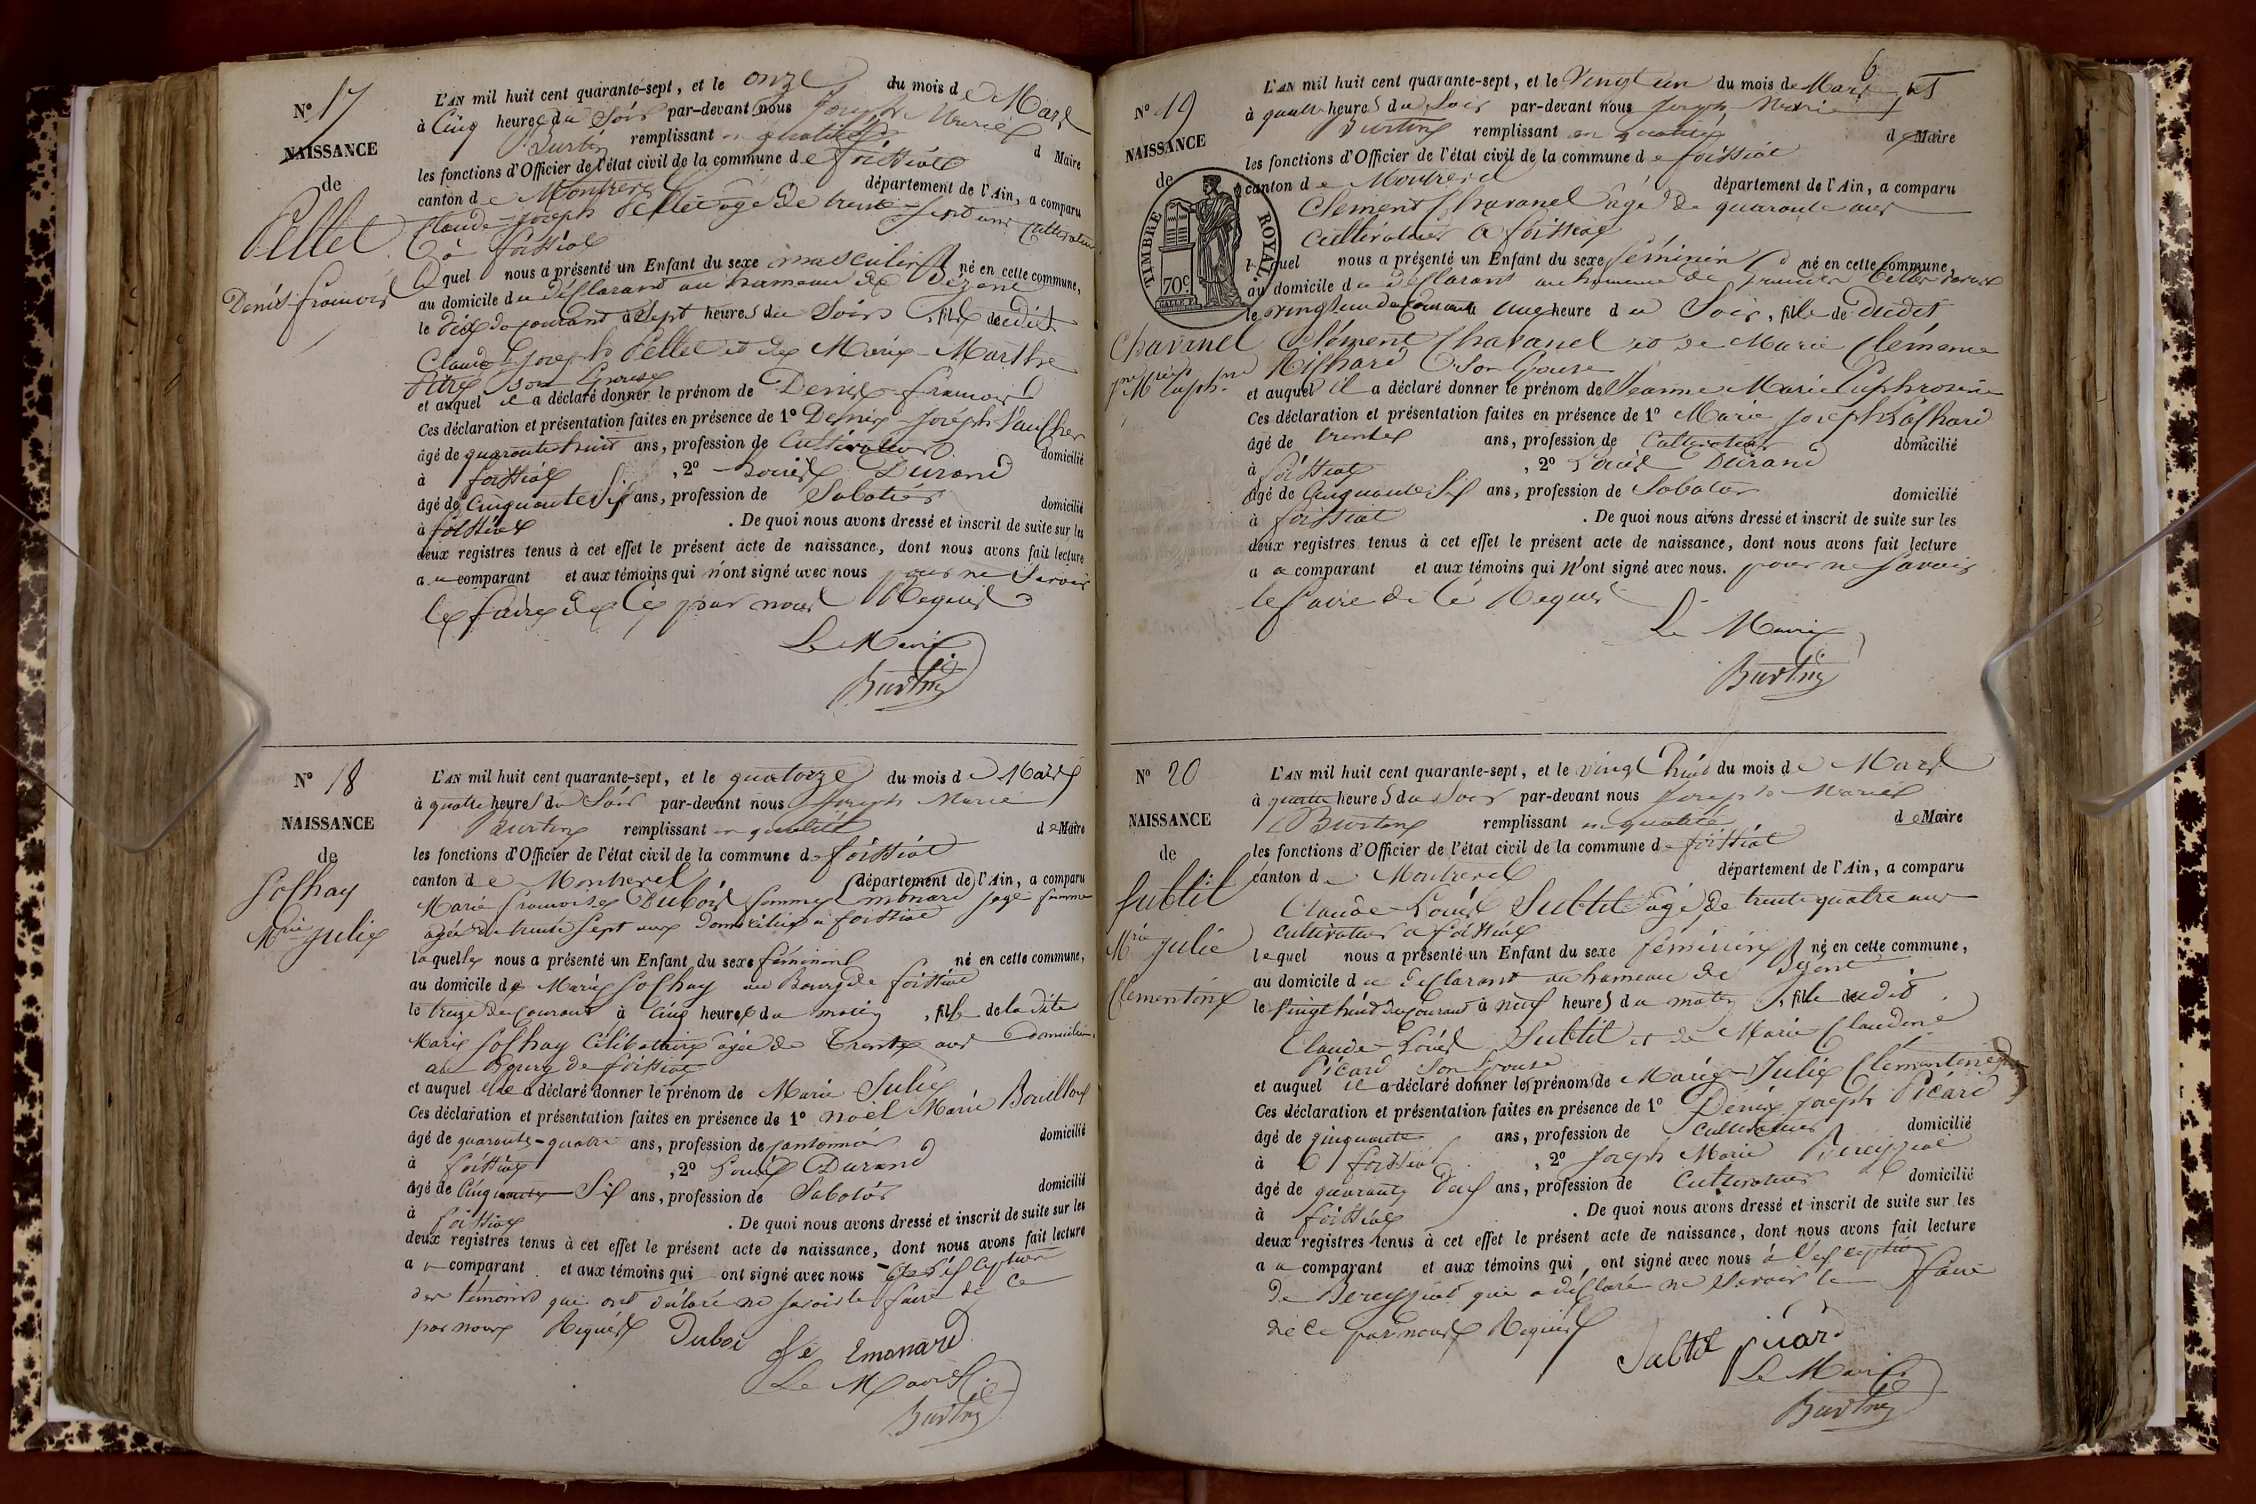 N° 17
NAISSANCE
de
Pellet
Denis françois
L'AN mil huit cent quarante-sept, et le onze du mois de Mars
à Cinq heures du Soir par-devant nous Joseph Marie
Burtin remplissant en qualité d Maire
les fonctions d'Officier de l'état civil de la commune de foissiat
canton de Montrevel département de l'Ain, a comparu
Claude Joseph Pellet âgé de trente-sept ans Cultivateur
à foissiat
lequel nous a présenté un Enfant du sexe masculin né en cette commune,
au domicile du déclarant au hameau de
le dix du courant à Sept heures du Soir, fils dudit
Claude Joseph Pellet et de Marie Marthe
son Epouse
et auquel il a déclaré donner le prénom de Denis françois
Ces déclaration et présentation faites en présence de 1° Denis Joseph Vaucher
âgé de quarante huit ans, profession de Cultivateur domicilié
à foissiat, 2° Louis Durand
âgé de Cinquante Six ans, profession de Sabotier domicilié
à foissiat. De quoi nous avons dressé et inscrit de suite sur les
deux registres tenus à cet effet le présent acte de naissance, dont nous avons fait lecture
au comparant et aux témoins qui n'ont signé avec nous pour ne Savoir
le faire de Ce par nous Requis
Le Maire
Burtin
N° 18
NAISSANCE
de
Sochay
Mrie Julie
L'AN mil huit cent quarante-sept, et le quatorze du mois de Mars
à quatre heures du Soir par-devant nous Joseph Marie
Burtin remplissant en qualité de Maire
les fonctions d'Officier de l'état civil de la commune de foissiat
canton de Montrevel département de l'Ain, a comparu
Marie françoise Dubois femme Emonard Sage femme
agée de trente Sept ans domiciliée à foissiat
laquelle nous a présenté un Enfant du sexe féminin né en cette commune,
au domicile de Marie Sochay au Bourg de foissiat
le treize du Courant à Cinq heures du matin, fille de la dite
Marie Sochay Célibataire agée de Trente ans domiciliée
au Bourg de foissiat
et auquel elle a déclaré donner le prénom de Marie Julie
Ces déclaration et présentation faites en présence de 1° noël Marie Bouilloux
âgé de quarante-quatre ans, profession de Cantonnier domicilié
à foissiat, 2° Louis Durand
âgé de Cinquante Six ans, profession de Sabotier domicilié
à foissiat. De quoi nous avons dressé et inscrit de suite sur les
deux registres tenus à cet effet le présent acte de naissance, dont nous avons fait lecture
au comparant et aux témoins qui ont signé avec nous à l'Exception
des témoins qui ont déclaré ne savoir le faire de Ce
par nous Requis Duboi fe Emonard
Le Maire
Burtin
6
N° 19
NAISSANCE
de
TIMBRE ROYAL
70c
Chavanel
L'AN mil huit cent quarante-sept, et le Vingt un du mois de Mars
à quatre heures du Soir par-devant nous Joseph Marie
Burtin remplissant en qualité de Maire
les fonctions d'Officier de l'état civil de la commune de foissiat
canton de Montrevel département de l'Ain, a comparu
Clement Chavanel âgé de quarante ans
Cultivateur à foissiat
lequel nous a présenté un Enfant du sexe féminin né en cette commune,
au domicile du déclarant au hameau de
le vingt un du Courant à une heure du Soir, fille de Dudit
Clément Chavanel et de Marie Clémence
Richard Son Epouse
et auquel il a déclaré donner le prénom de Jeanne Marie Euphrosine
Ces déclaration et présentation faites en présence de 1° Marie Joseph Richard
âgé de trente ans, profession de Cultivateur domicilié
à foissiat, 2° Louis Durand
âgé de Cinquante Six ans, profession de Sabotier domicilié
à foissiat. De quoi nous avons dressé et inscrit de suite sur les
deux registres tenus à cet effet le présent acte de naissance, dont nous avons fait lecture
au comparant et aux témoins qui N'ont signé avec nous. pour ne Savoir
le faire de Ce Requis
Le Maire
Burtin
N° 20
NAISSANCE
de
Subtil
Mrie Julie
Clementine
L'AN mil huit cent quarante-sept, et le vingt huit du mois de Mars
à quatre heures du Soir par-devant nous Joseph Marie
Burtin remplissant en qualité de Maire
les fonctions d'Officier de l'état civil de la commune de foissiat
canton de Montrevel département de l'Ain, a comparu
Claude Louis Subtil âgé de trente quatre ans
cultivateur à foissiat
lequel nous a présenté un Enfant du sexe féminin né en cette commune,
au domicile du déclarant au hameau de
le Vingt huit du courant à neuf heures du matin, fille dudit
Claude Louis Subtil et de Marie Claudine
Picard Son Epouse
et auquel il a déclaré donner les prénoms de Marie Julie Clémentine
Ces déclaration et présentation faites en présence de 1° Denis Joseph Picard
âgé de cinquante ans, profession de Cultivateur domicilié
à foissiat, 2° Joseph Marie Bereyziat
âgé de quarante deux ans, profession de Cultivateur domicilié
à foissiat. De quoi nous avons dressé et inscrit de suite sur les
deux registres tenus à cet effet le présent acte de naissance, dont nous avons fait lecture
au comparant et aux témoins qui, ont signé avec nous à l'exception
de Bereyziat qui a déclaré ne Savoir le faire
de Ce par nous Requis
Subtil picard
Le Maire
Burtin